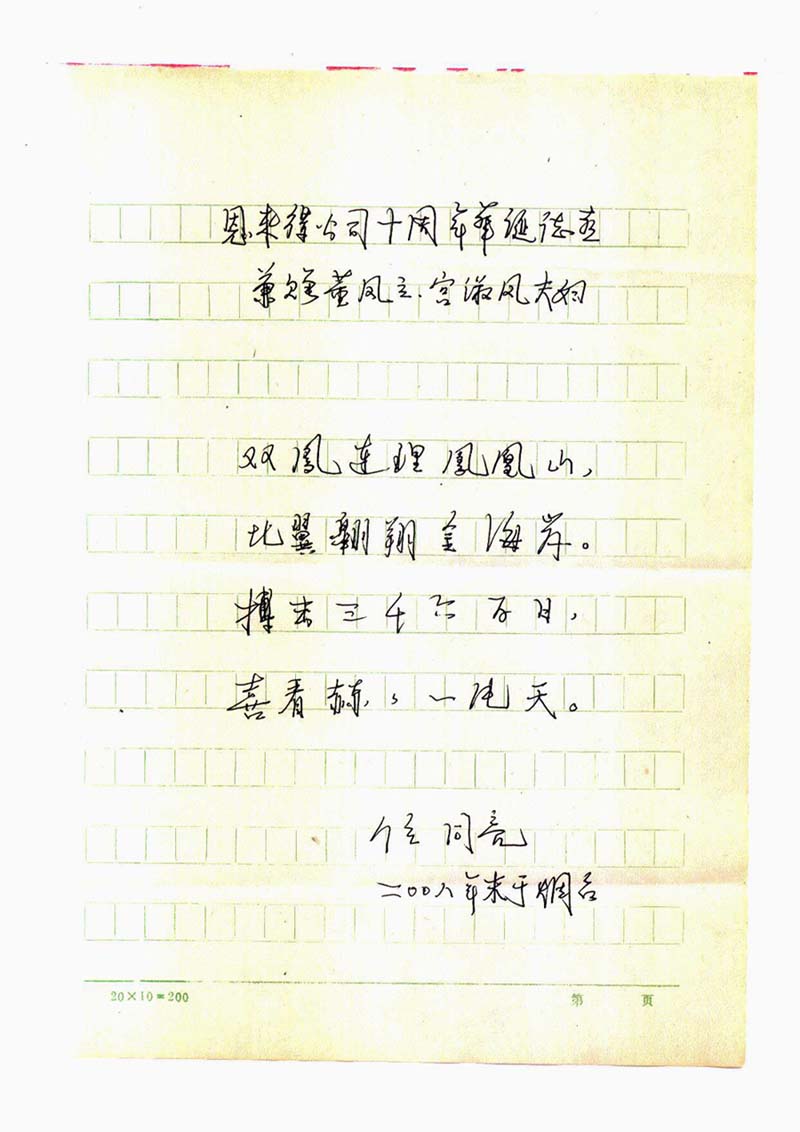 恩来得公司十周年华诞志喜
兼贈董凤立·宫淑凤夫妇
双鳳连理鳳凰山,
比翼翱翔金海岸。
搏击三千六百日,
喜看赫々一片天。
任同亮
二〇〇八年末于烟台
20×10=200
第 页